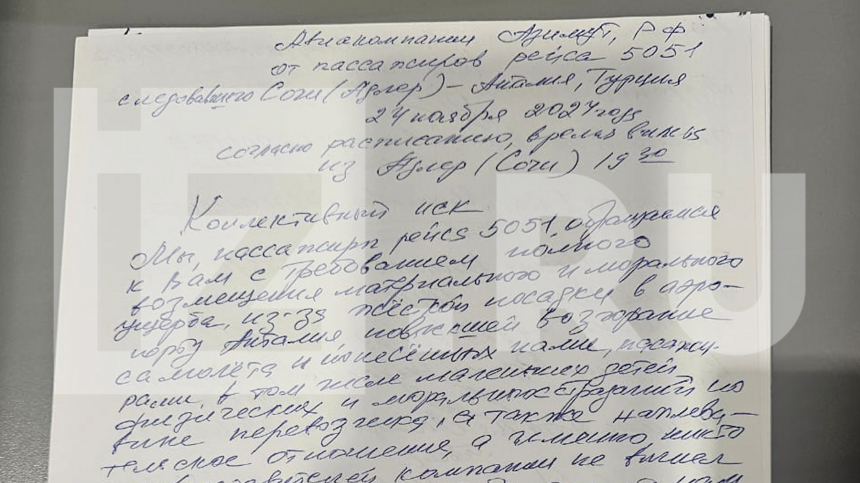 Авиакомпании Азимут, РФ
от пассажиров рейса 5051
следовавшего Сочи (Адлер) – Анталия, Турция
24 ноября 2024 года
согласно расписанию, время вылета
из Адлер (Сочи) 19 30
Коллективный иск
Мы, пассажиры рейса 5051, обращаемся
к Вам с требованием полного
возмещения материального и морального
ущерба, из-за жёсткой посадки в аэро-
порту Анталия, повлекшей возгорание
самолёта и понесённых нами, пассажи-
рами, в том числе маленьких детей
физических и моральных страданий по
вине перевозчика, а также наплева-
тельское отношение, а именно, никто
представителей компании не вышел
iz.RU